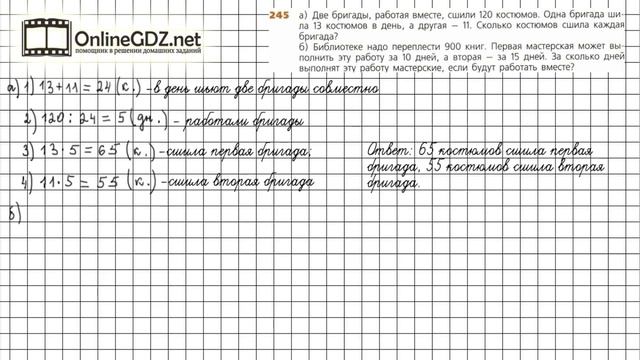 OnlineGDZ.net
помощник в решении домашних заданий
245 а) Две бригады, работая вместе, сшили 120 костюмов. Одна бригада ши-
ла 13 костюмов в день, а другая – 11. Сколько костюмов сшила каждая
бригада?
б) Библиотеке надо переплести 900 книг. Первая мастерская может вы-
полнить эту работу за 10 дней, а вторая – за 15 дней. За сколько дней
выполнят эту работу мастерские, если будут работать вместе?
а) 1) 13+11=24 (к.) -в день шьют две бригады совместно
2) 120 : 24 = 5 (дн.) - работали бригады
3) 13·5=65 (к.) -сшила первая бригада;
4) 11·5=55 (к.) -сшила вторая бригада
Ответ: 65 костюмов сшила первая
бригада, 55 костюмов сшила вторая
бригада.
б)